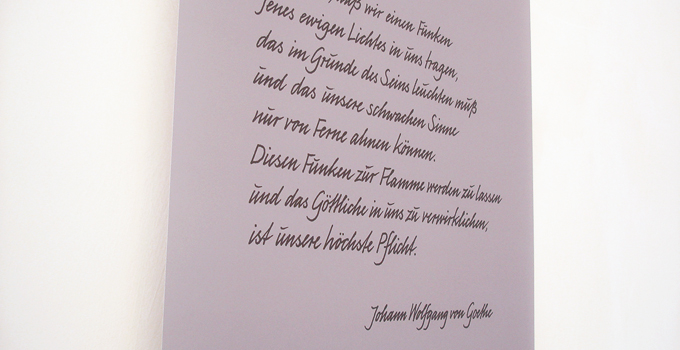 daß wir einen Funken
Jenes ewigen Lichtes in uns tragen,
das im Grunde des Seins leuchten muß
und das unsere schwachen Sinne
nur von Ferne ahnen können.
Diesen Funken zur Flamme werden zu lassen
und das Göttliche in uns zu verwirklichen,
ist unsere höchste Pflicht.
Johann Wolfgang von Goethe